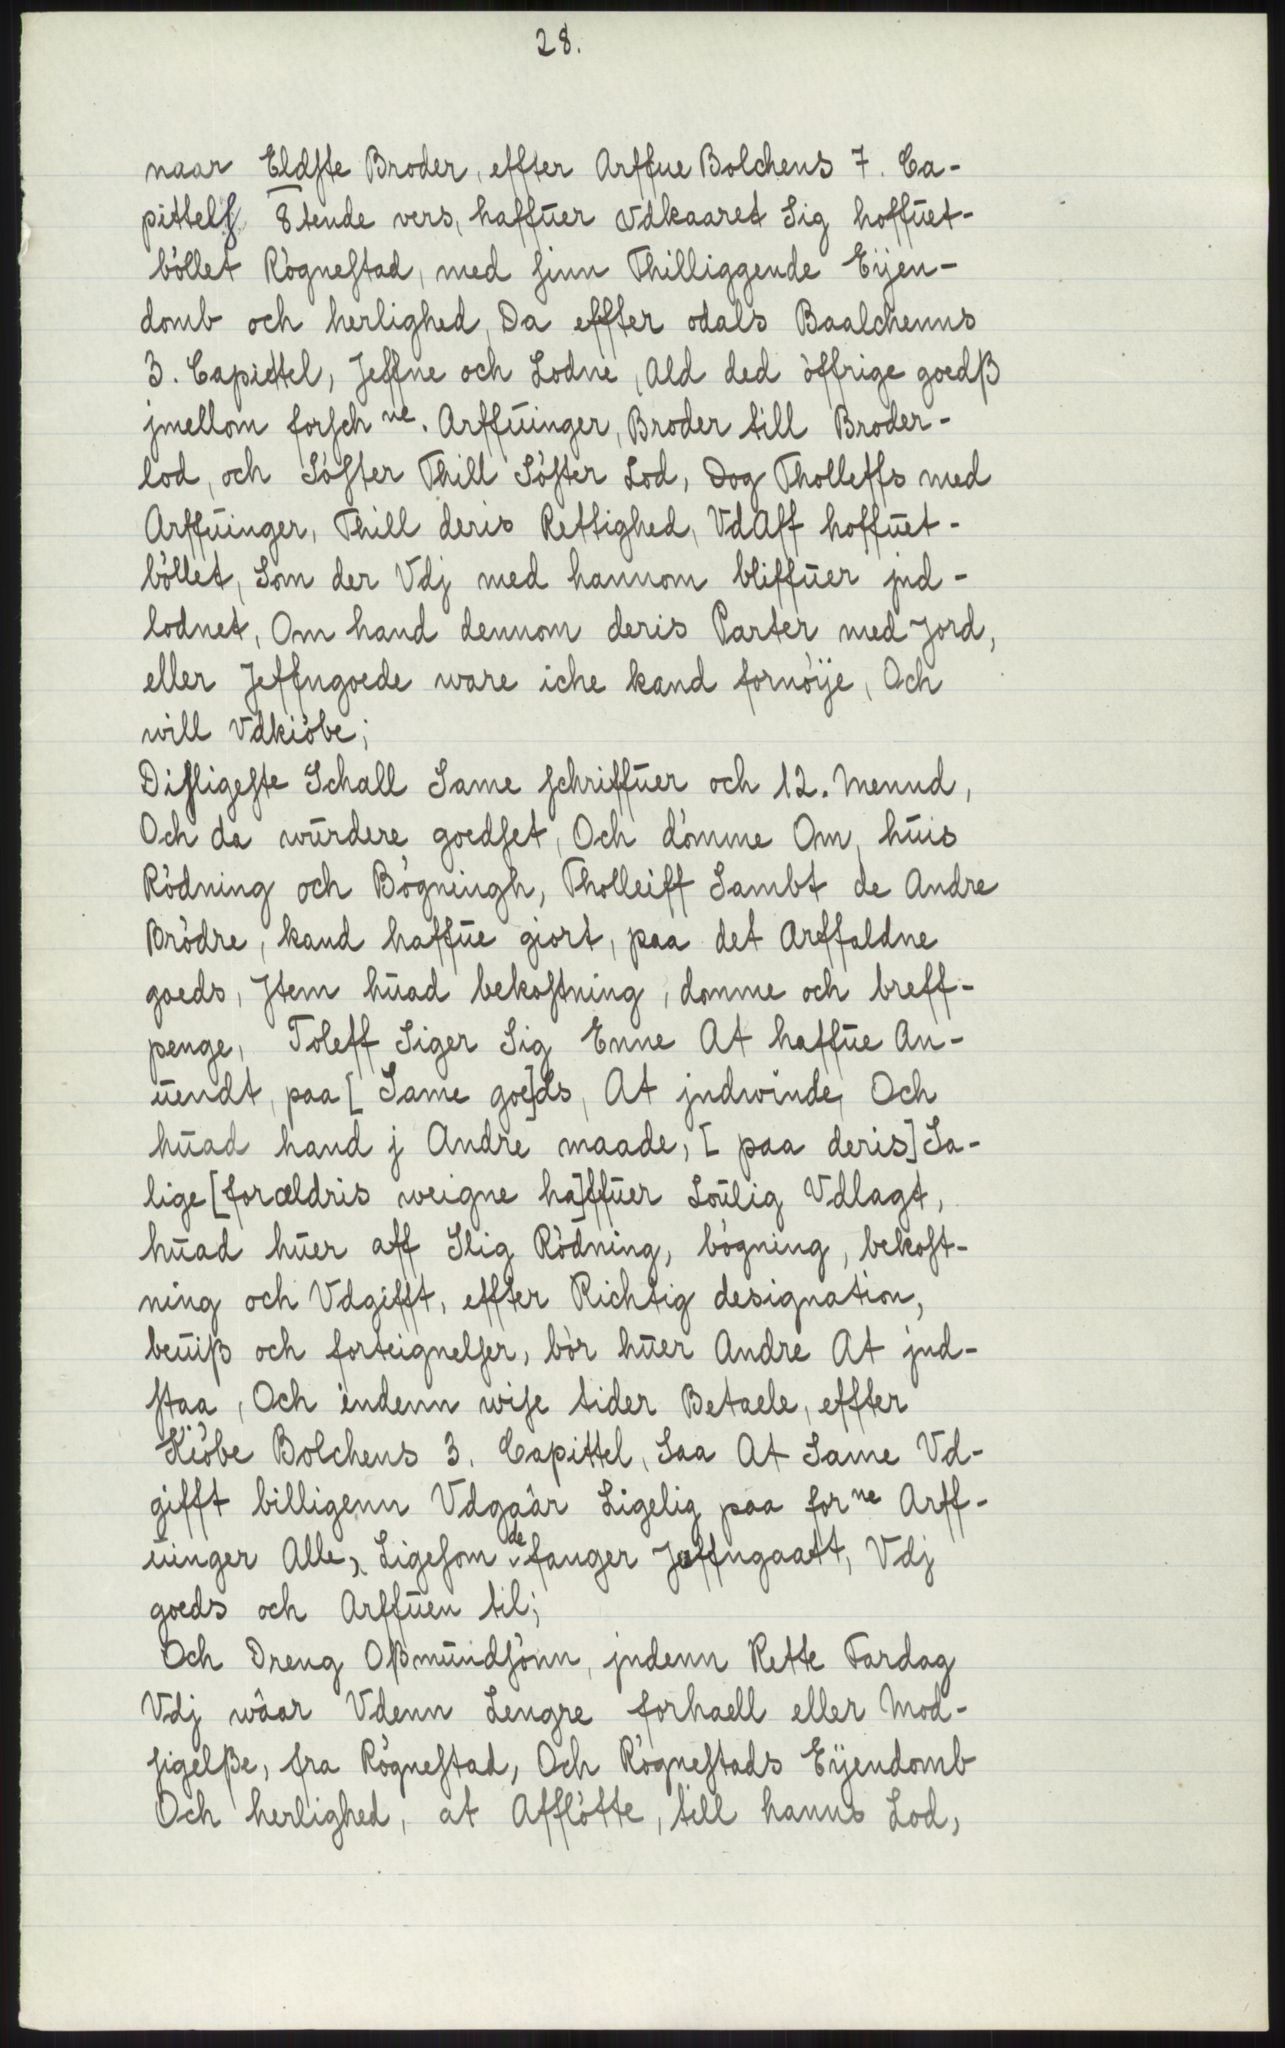 28.
naar Eldste Broder, effter Arffue Bolchens 7. Ca-
pittels 8tende vers, haffuer Vdkaaret Sig hoffuet-
bòllet Rògnestad, med sinn Thilliggende Eÿen-
domb och herlighed, Da effter odals Baalchenns
3. Capittel, Jeffne och Lodne, Ald ded òffrige goedß
jmellom forsch ne. Arffuinger, Broder till Broder-
lod, och Sòster Thill Sòster Lod, Dog Tholleffs med
Arffuinger, Thill deris Rettighed, VdAff hoffuet-
bòllet, Som der Vdj med hannom bliffuer jnd-
lodnet, Om hand dennom deris Parter med Jord,
eller Jeffngoede ware iche kand fornòÿe, Och
will Vdkiòbe;
Disligeste Schall Same schriffuer och 12. Mennd,
Och da wurdere goedset, Och dòmme Om, huis
Ròdning och Bògningh, Tholleiff Sambt de Andre
Bròdre, kand haffue giort, paa det Arffaldne
goeds, Jtem huad bekostning, domme och breff-
penge, Toleff Siger Sig Enne At haffue An-
uendt, paa [Same goe]ds, At jndwinde, Och
huad hand j Andre maade, [paa deris] Sa-
lige [forældris weigne ha]ffuer Loulig Vdlagt,
huad huer aff Slig Ròdning, bògning, bekost-
ning och Vdgifft, effter Richtig designation,
beuiß och forteignelser, bòr huer Andre At jnd-
staa, Och indenn wise tider Betaele, effter
Kiòbe Bolchens 3. Capittel, Saa At Same Vd-
gifft billigenn Vdgaàr Ligelig paa for ne Arff-
uinger Alle, Ligesom de fanger Jeffngaatt, Vdj
goeds och Arffuen til;
Och Dreng Oßmundsònn, jndenn Rette Fardag
Vdj wâar Vdenn Lengre forhaell eller Mod-
sigelße, fra Rògnestad, Och Rògnestads Eÿendomb
Och herlighed, at Afflòtte, till hanns Lod,